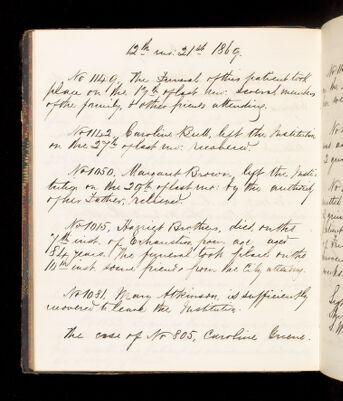 12th mo: 21st 1869.
No 1149, The Funeral of this patient took
place on the 17th of last mo: several members
of the family, & other friends attending.
No 1142, Caroline Brett, left the Institution
on the 27th of last mo: recovered.
No 1050, Margaret Brown, left the Insti-
tution on the 29th of last mo: by the authority
of her Father, relieved.
No 1015, Harriet Brothers, died on the
7th inst. of Exhaustion from age, aged
84 years. The funeral took place on the
10th inst some friends from the City attending.
No 1081, Mary Atkinson, is sufficiently
recovered to leave the Institution.
The case of No 805, Caroline Greene.